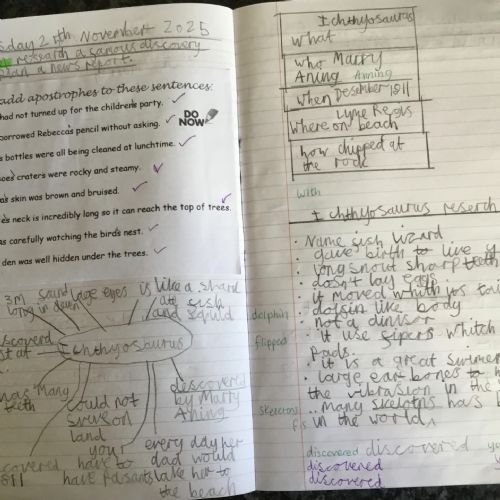 sday 27th November 2025
research a famous discovery
plan a news report.
add apostrophes to these sentences:
had not turned up for the children's party.
borrowed Rebeccas pencil without asking.
s bottles were all being cleaned at lunchtime.
oes' craters were rocky and steamy.
a's skin was brown and bruised.
e's neck is incredibly long so it can reach the top of trees.
as carefully watching the bird's nest.
den was well hidden under the trees.
DO NOW
3M long eyes is like a shard
ate fish and squid
Ichthyosaurus
discoverd
Many teeth
could not
on land
discovered by Marry Aning
every day her dad would take her to the beach
covered
1811
have to
have
Ichthyosaurus
What
who Marry Aning Anning
when Desember 1811
Lyme Regis
where on beach
how chipped at the rock
with
Ichthyosaurus reserch
. Name fish lizard
. gave birth to live
. long snout sharp teeth
. doesn't lay eggs
. it moved whith its tai
dolphin . dolfin like body
. not a
flipped . it use flipers whitch
pads.
. it is a great swimer
. large ear bones to h
the vibrasion in the
skeletons . many skeletns has b
in the world.
discovered discovered yo
discovered
discovered